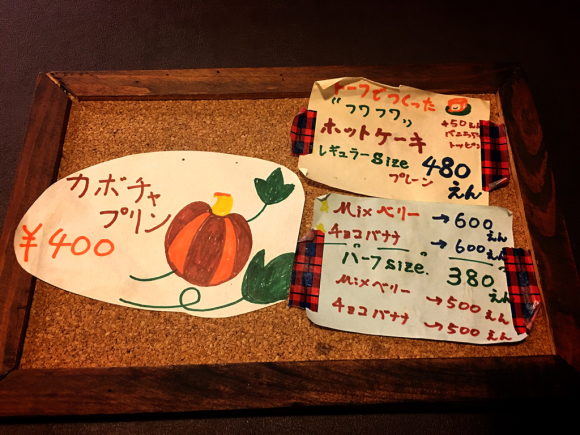 カボチャ
プリン
¥400
トーフでつくった
"フワフワ"
ホットケーキ
+50えん
バニラアイス
トッピング
レギュラーsize 480
プレーン えん
Mixベリー →600えん
チョコバナナ →600えん
ハーフsize. 380えん
Mixベリー →500えん
チョコバナナ →500えん